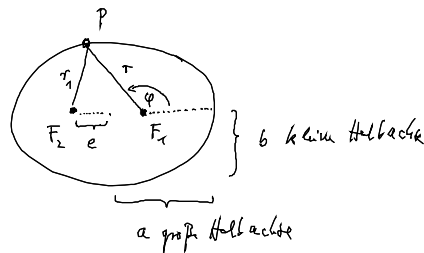 P
r₁ r φ
F₂ e F₁
b kleine Halbachse
a große Halbachse